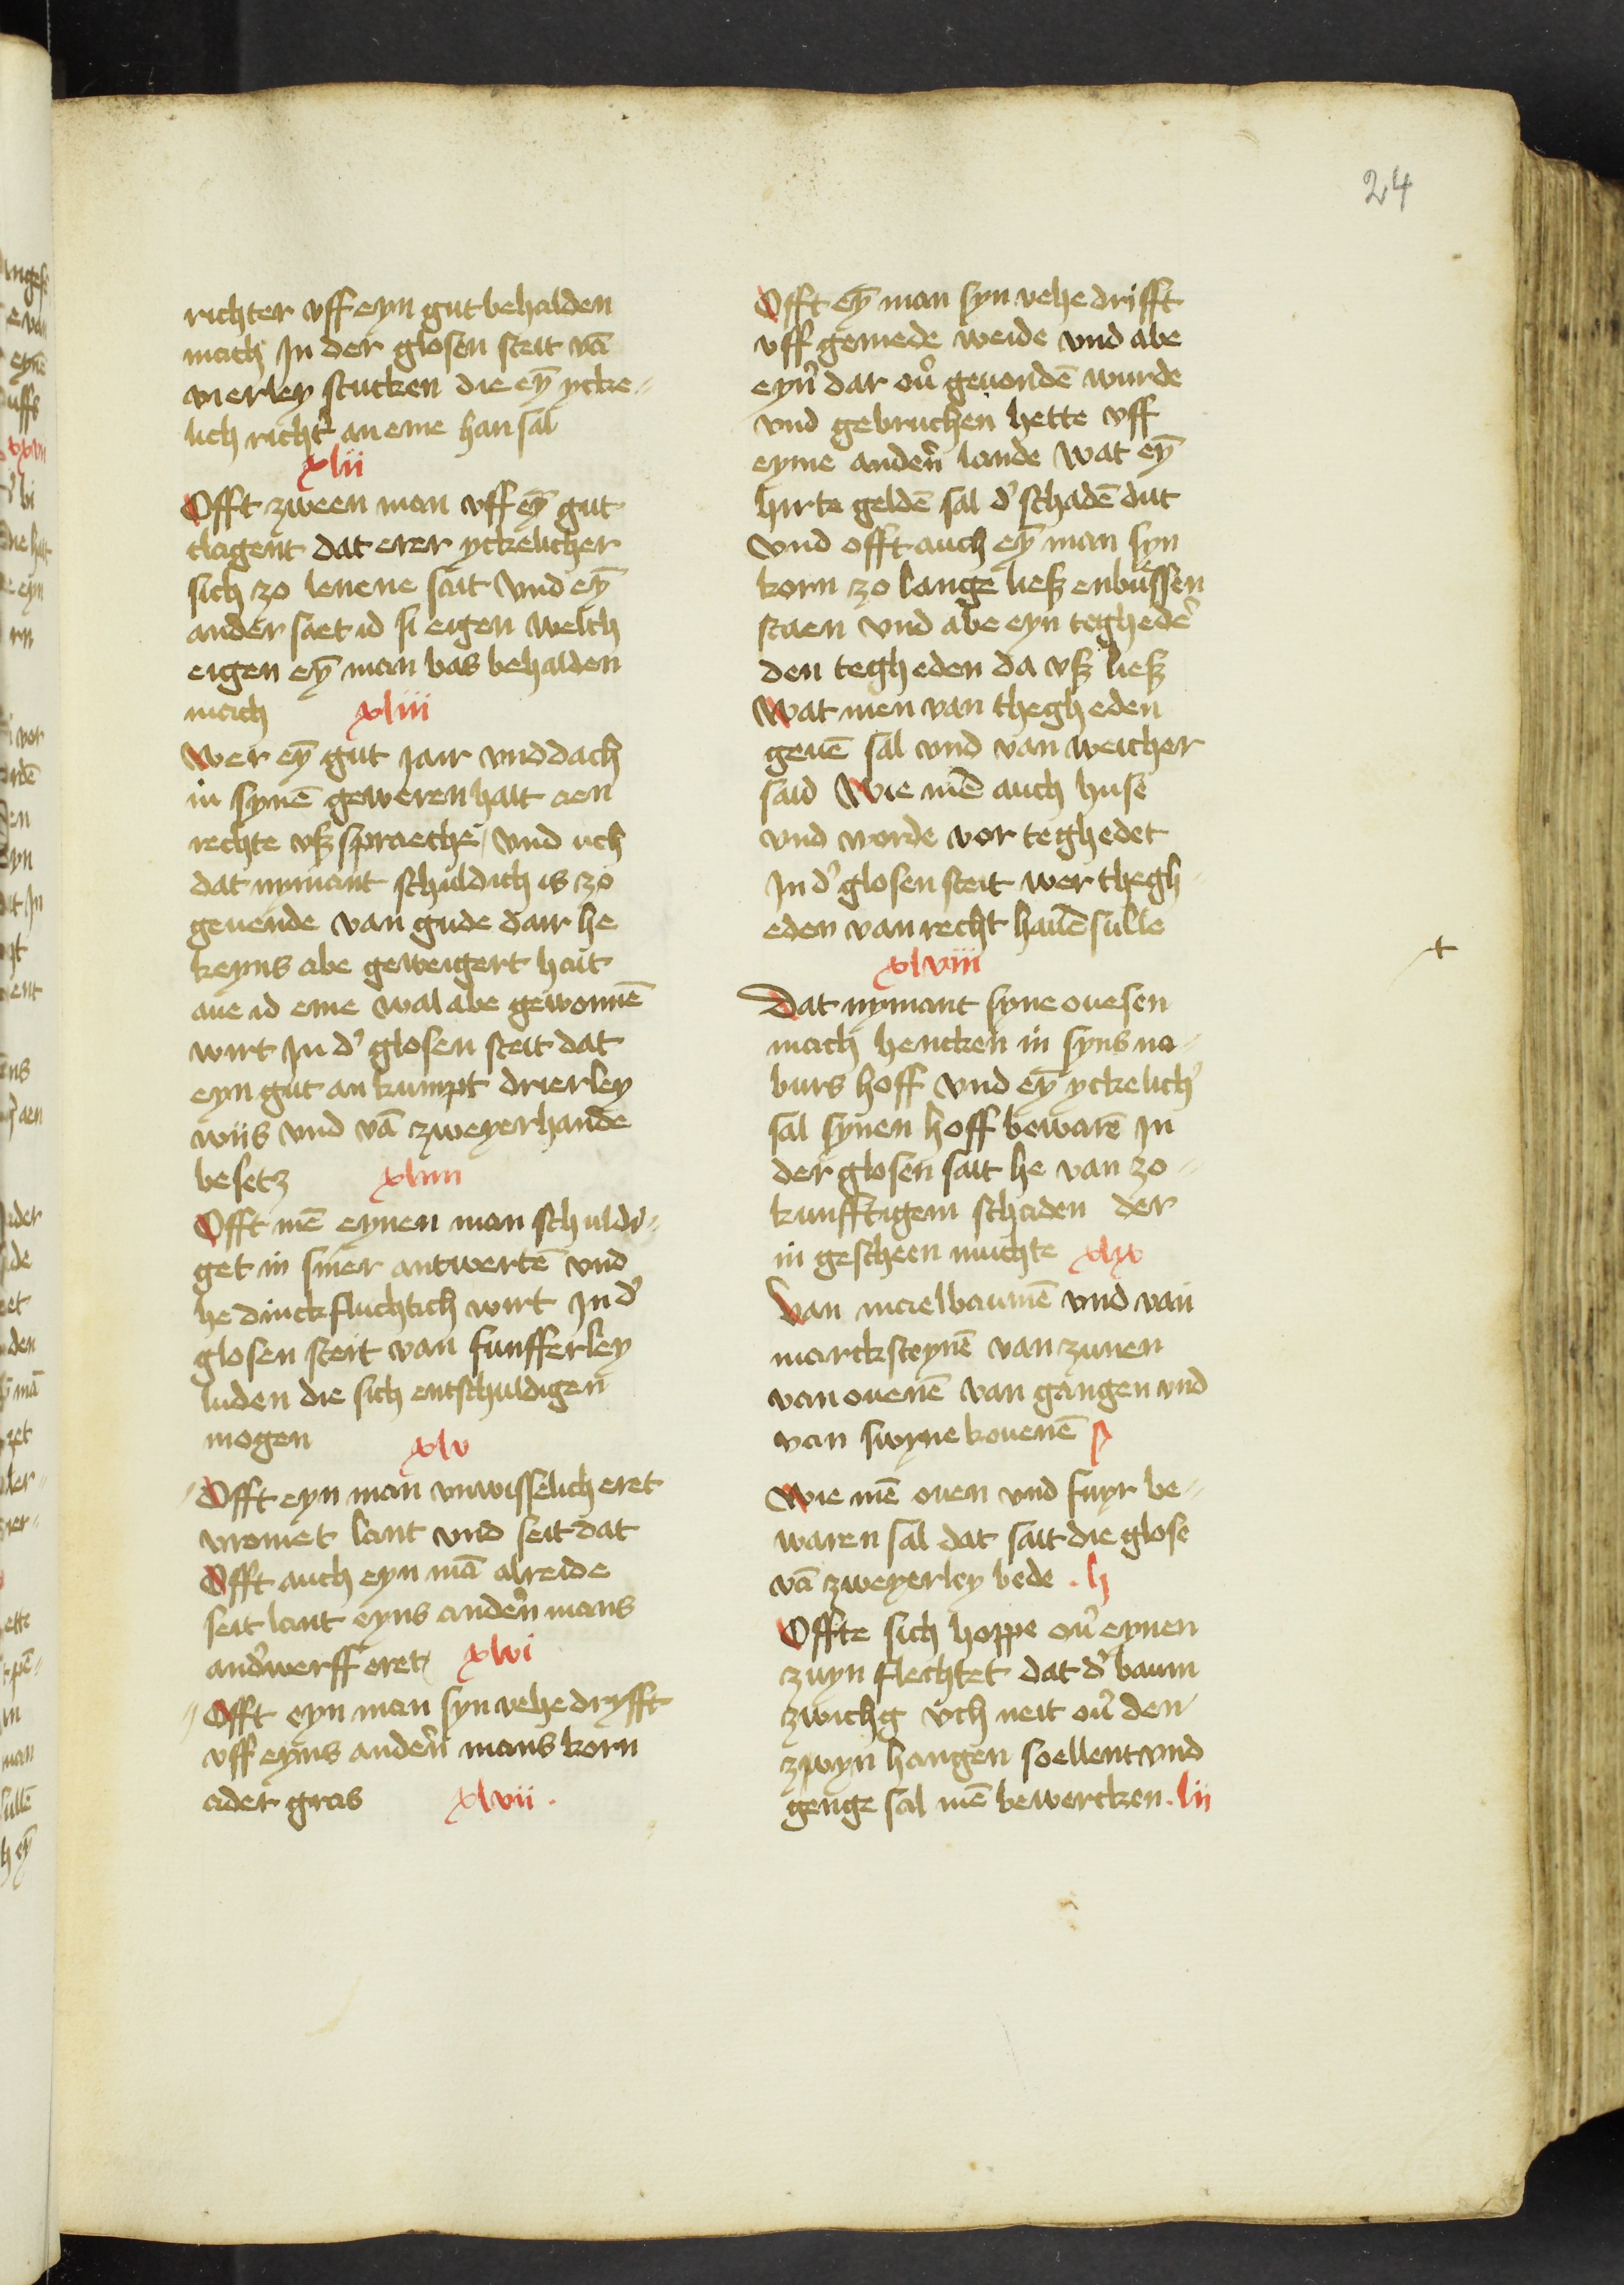 24
richter vff eyn gut behalden
mach Jn der glosen steit vā
vierley stucken die eȳ ycke„
lich richt' an eme han sal
xlii
Offt zween man vff eȳ gut
clagent dat erer yckelicher
sich zo lenene sait vnd eȳ
ander saet id si eigen welch
eigen eȳ man bas behalden
mach xliii
Wer eȳ gut jair vnd dach
in synē geweren hait aen
rechte vß spraeche vnd uch
dat nymant schuldich is zo
geuende van gude dair he
keyns abe geweigert hait
aue id eme wal abe gewonnē
wirt Jn d' glosen steit dat
eyn gut an kumpt drierley
wiis vnd vā zweyerhande
besetz xliiii
Offt mē eynen man schuldi„
get in siner antwertē vnd
he dinckfluchtich wirt Jn d'
glosen steit van funfferley
luden die sich entschuldigen
mogen xlv
Offt eyn man vnwisselich eret
vromet lant vnd seit dat
Offt auch eyn mā alreide
seit lant eyns anden̄ mans
and'werff eret xlvi
Offt eyn man syn vehe dryfft
vff eyns anden̄ mans korn
ader gras xlvii .
Offt eȳ man syn vehe drifft
vff gemede weide vnd abe
eyn̄ dar ou' geuondē wurde
vnd gebruchen hette vff
eyme anden̄ lande Wat eȳ
hirte geldē sal d' schadē dut
Vnd offt auch eȳ man syn
korn zo lange ließ enbussen
staen vnd abe eyn teghedē'
den tegheden da vß ließ
Wat men van thegheden
geuē sal vnd van welcher
said Wie mē auch huse
vnd worde vor teghedet
Jn d' glosen steit wer thegh
eden van recht hauē sulle
xlviii
Dat nymant syne ouesen
mach hencken in syns na„
burs hoff vnd eȳ yckelich'
sal synen hoff bewarē Jn
der glosen sait he van zo„
kunfftigem schaden der
in gescheen muchte xlix
Van maelbaumē vnd van
marcksteynē van zunen
van ouenē van gangen vnd
van swyne kouenē
Wie mē ouen vnd fuyr be„
waren sal dat sait die glose
vā zweyerley bede . li
Offte sich hoppe ou' eynen
zuyn flechtet dat d' baum
zwichg vch neit ou' den
zwyn hangen soellent vnd
genge sal mē bewercken . lii